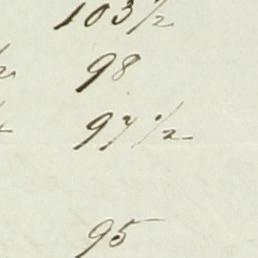 103 1/2
98
97 1/2
95